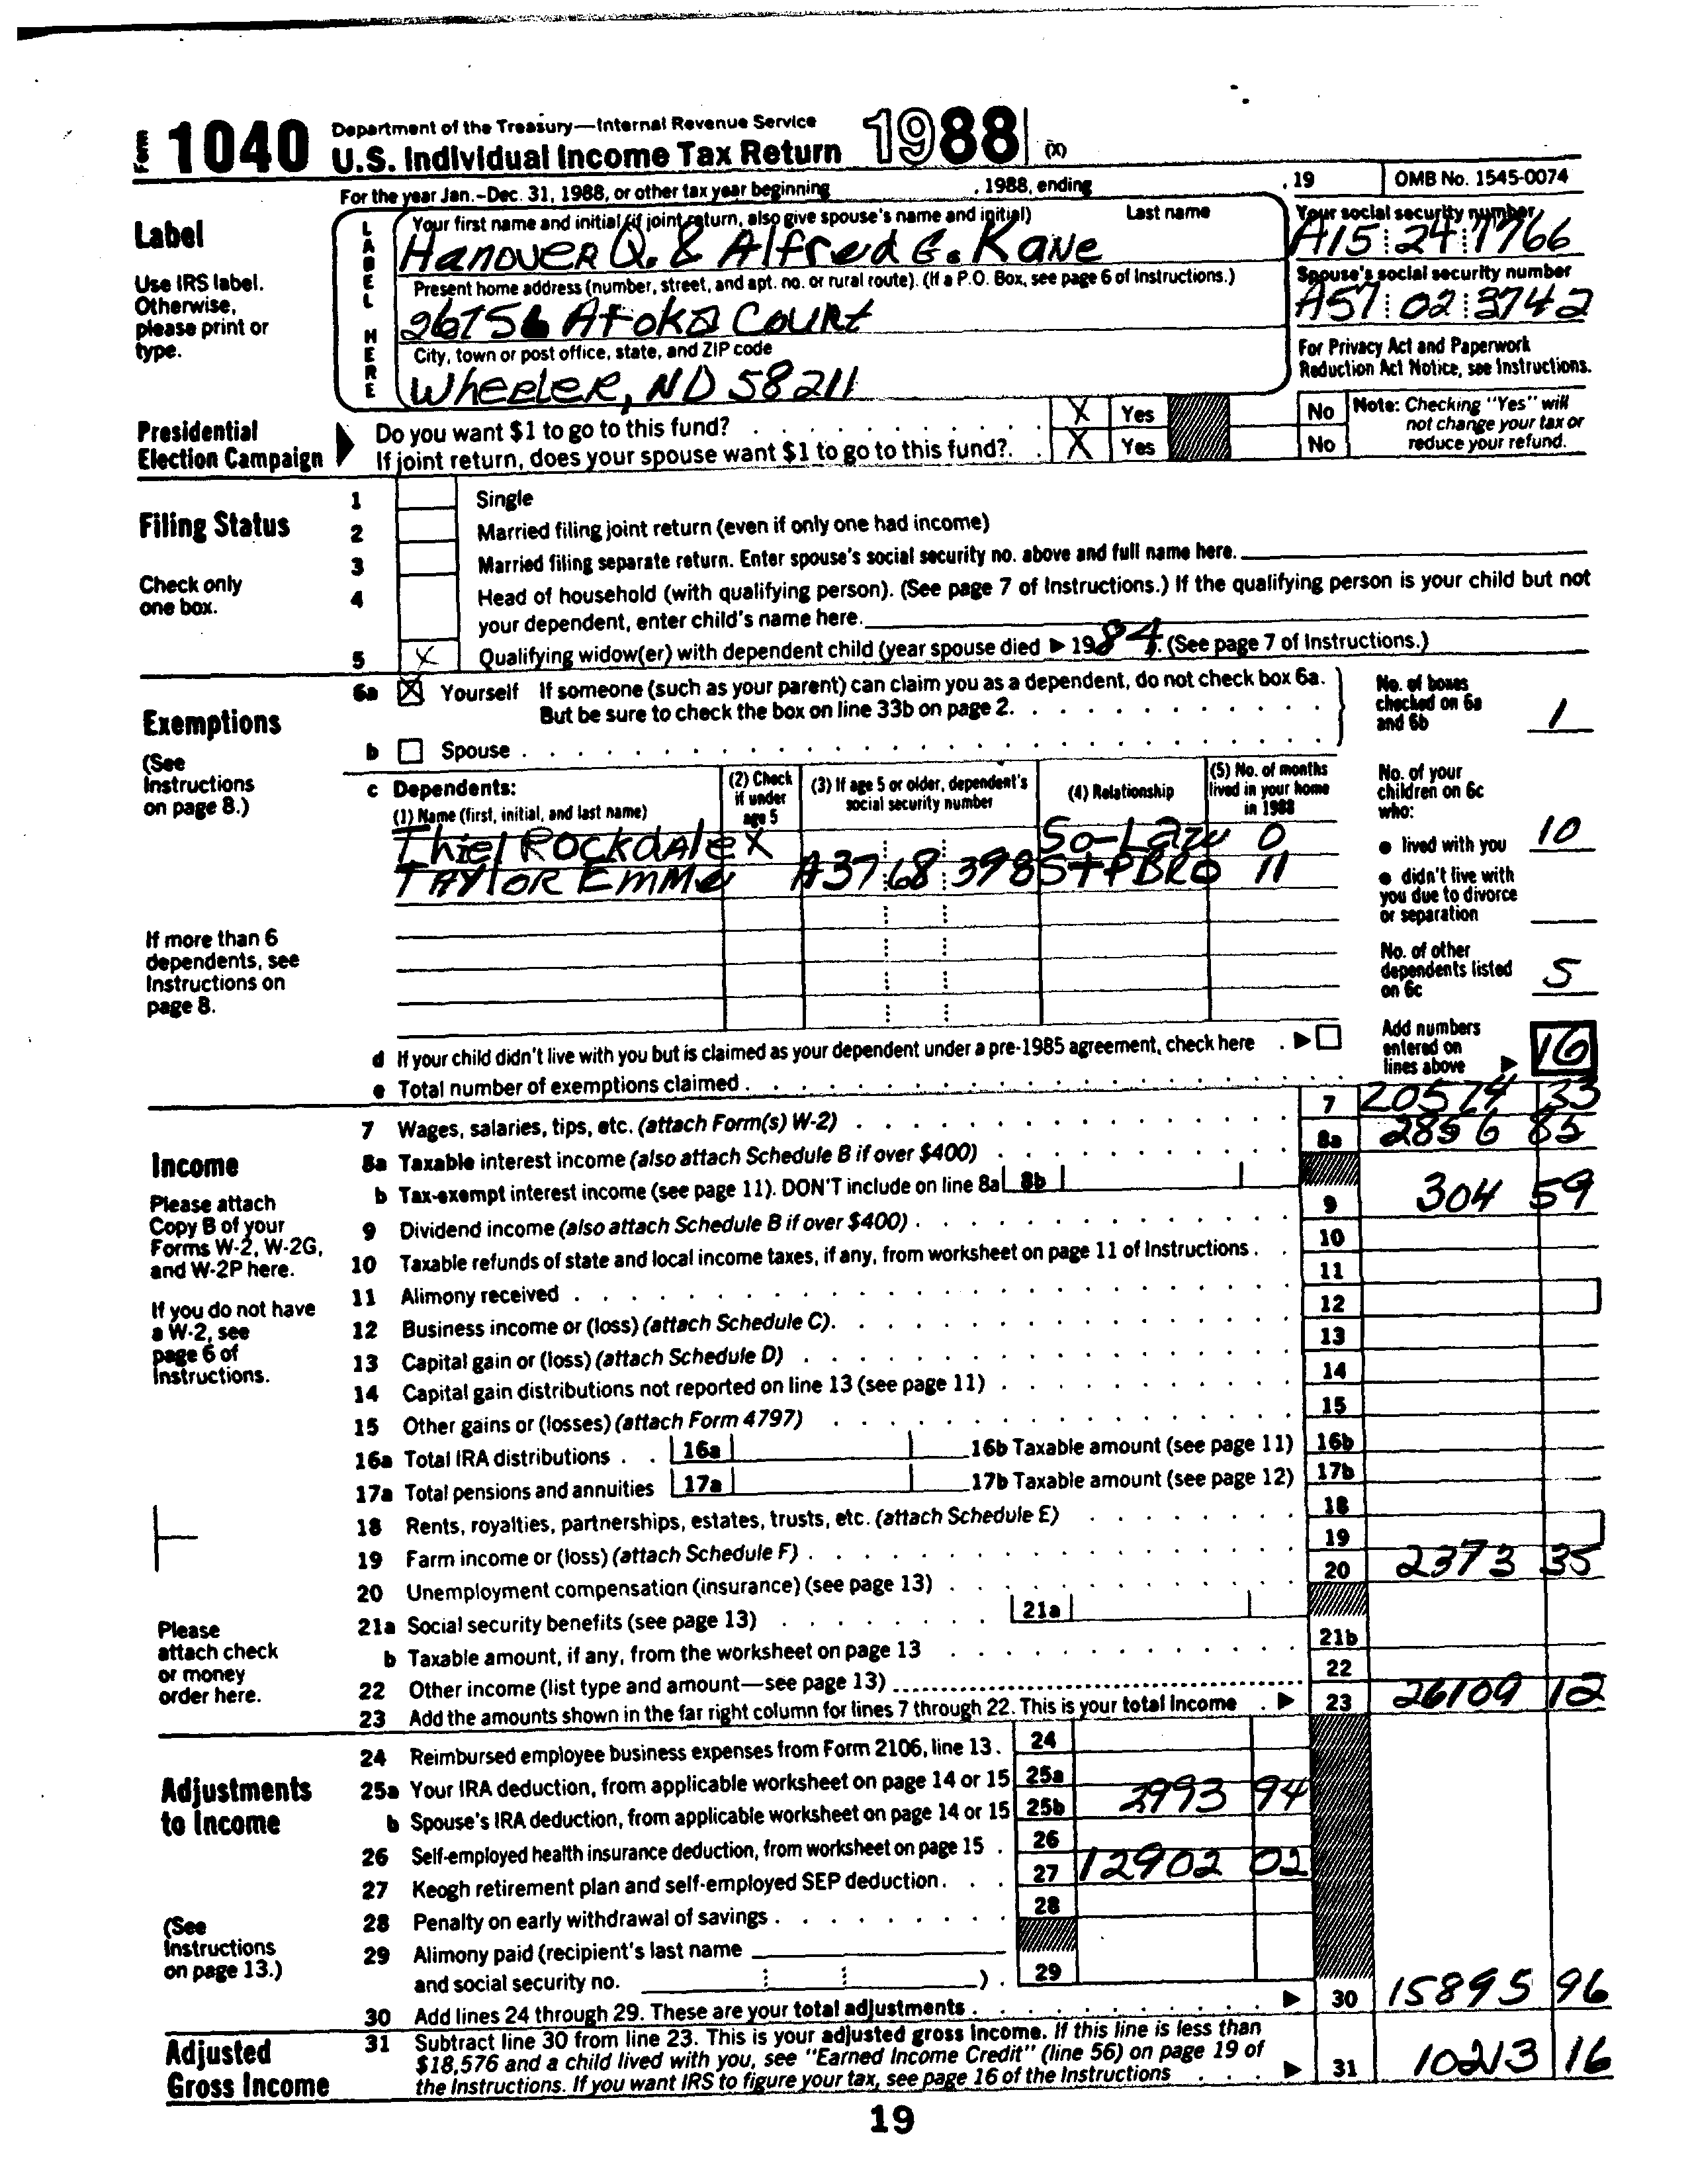 Form 1040 Department of the Treasury—Internal Revenue Service
U.S. Individual Income Tax Return 1988 (X)
For the year Jan.-Dec. 31, 1988, or other tax year beginning , 1988, ending , 19 OMB No. 1545-0074
Label
Use IRS label.
Otherwise,
please print or
type.
LABEL HERE
Your first name and initial (if joint return, also give spouse's name and initial) Last name
Hanover Q. & Alfred G. Kane
Your social security number
A15 24 7766
Present home address (number, street, and apt. no. or rural route). (If a P.O. Box, see page 6 of Instructions.)
26756 Atoka Court
Spouse's social security number
A57 02 3742
City, town or post office, state, and ZIP code
Wheeler, ND 58211
For Privacy Act and Paperwork
Reduction Act Notice, see Instructions.
Presidential
Election Campaign
Do you want $1 to go to this fund? X Yes No
If joint return, does your spouse want $1 to go to this fund? X Yes No
Note: Checking "Yes" will
not change your tax or
reduce your refund.
Filing Status
Check only
one box.
1 Single
2 Married filing joint return (even if only one had income)
3 Married filing separate return. Enter spouse's social security no. above and full name here.
4 Head of household (with qualifying person). (See page 7 of Instructions.) If the qualifying person is your child but not
your dependent, enter child's name here.
5 X Qualifying widow(er) with dependent child (year spouse died ▶ 1984). (See page 7 of Instructions.)
Exemptions
(See
Instructions
on page 8.)
6a X Yourself If someone (such as your parent) can claim you as a dependent, do not check box 6a.
But be sure to check the box on line 33b on page 2.
b Spouse
No. of boxes
checked on 6a
and 6b 1
c Dependents:
(1) Name (first, initial, and last name)
(2) Check
if under
age 5
(3) If age 5 or older, dependent's
social security number
(4) Relationship
(5) No. of months
lived in your home
in 1988
Thiel Rockdale X 0
Taylor Emma A37 68 398 STPBRO 11
No. of your
children on 6c
who:
● lived with you 10
● didn't live with
you due to divorce
or separation
No. of other
dependents listed
on 6c 5
If more than 6
dependents, see
Instructions on
page 8.
d If your child didn't live with you but is claimed as your dependent under a pre-1985 agreement, check here ▶
e Total number of exemptions claimed
Add numbers
entered on
lines above ▶ 16
Income
Please attach
Copy B of your
Forms W-2, W-2G,
and W-2P here.
If you do not have
a W-2, see
page 6 of
Instructions.
Please
attach check
or money
order here.
7 Wages, salaries, tips, etc. (attach Form(s) W-2) 7 20574 33
8a Taxable interest income (also attach Schedule B if over $400) 8a 2856 85
b Tax-exempt interest income (see page 11). DON'T include on line 8a 8b
9 Dividend income (also attach Schedule B if over $400) 9 304 59
10 Taxable refunds of state and local income taxes, if any, from worksheet on page 11 of Instructions 10
11 Alimony received 11
12 Business income or (loss) (attach Schedule C) 12
13 Capital gain or (loss) (attach Schedule D) 13
14 Capital gain distributions not reported on line 13 (see page 11) 14
15 Other gains or (losses) (attach Form 4797) 15
16a Total IRA distributions 16a 16b Taxable amount (see page 11) 16b
17a Total pensions and annuities 17a 17b Taxable amount (see page 12) 17b
18 Rents, royalties, partnerships, estates, trusts, etc. (attach Schedule E) 18
19 Farm income or (loss) (attach Schedule F) 19
20 Unemployment compensation (insurance) (see page 13) 20 2373 35
21a Social security benefits (see page 13) 21a
b Taxable amount, if any, from the worksheet on page 13 21b
22 Other income (list type and amount—see page 13) 22
23 Add the amounts shown in the far right column for lines 7 through 22. This is your total income ▶ 23 26109 12
Adjustments
to Income
(See
Instructions
on page 13.)
24 Reimbursed employee business expenses from Form 2106, line 13. 24
25a Your IRA deduction, from applicable worksheet on page 14 or 15 25a
b Spouse's IRA deduction, from applicable worksheet on page 14 or 15 25b 2993 94
26 Self-employed health insurance deduction, from worksheet on page 15 26
27 Keogh retirement plan and self-employed SEP deduction 27 12902 02
28 Penalty on early withdrawal of savings 28
29 Alimony paid (recipient's last name
and social security no. ) 29
30 Add lines 24 through 29. These are your total adjustments ▶ 30 15895 96
Adjusted
Gross Income
31 Subtract line 30 from line 23. This is your adjusted gross income. If this line is less than
$18,576 and a child lived with you, see "Earned Income Credit" (line 56) on page 19 of
the Instructions. If you want IRS to figure your tax, see page 16 of the Instructions ▶ 31 10213 16
19